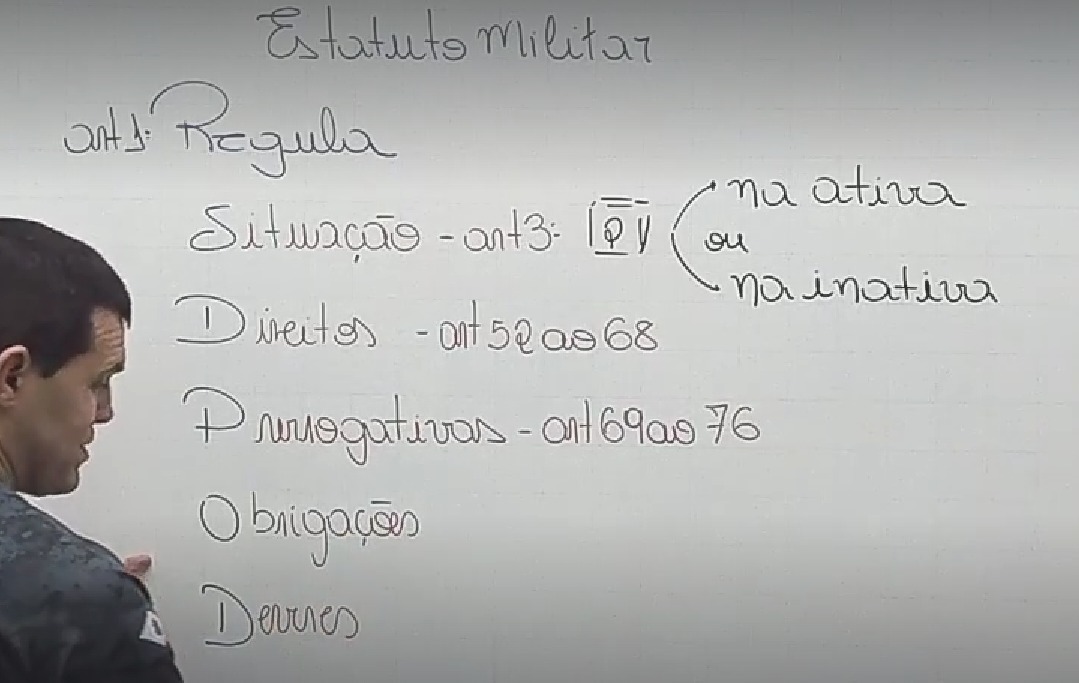 Estatuto Militar
art 1: Regula
Situação - art 3:
na ativa
ou
na inativa
Direitos - art 52 ao 68
Prerrogativas - art 69 ao 76
Obrigações
Deveres